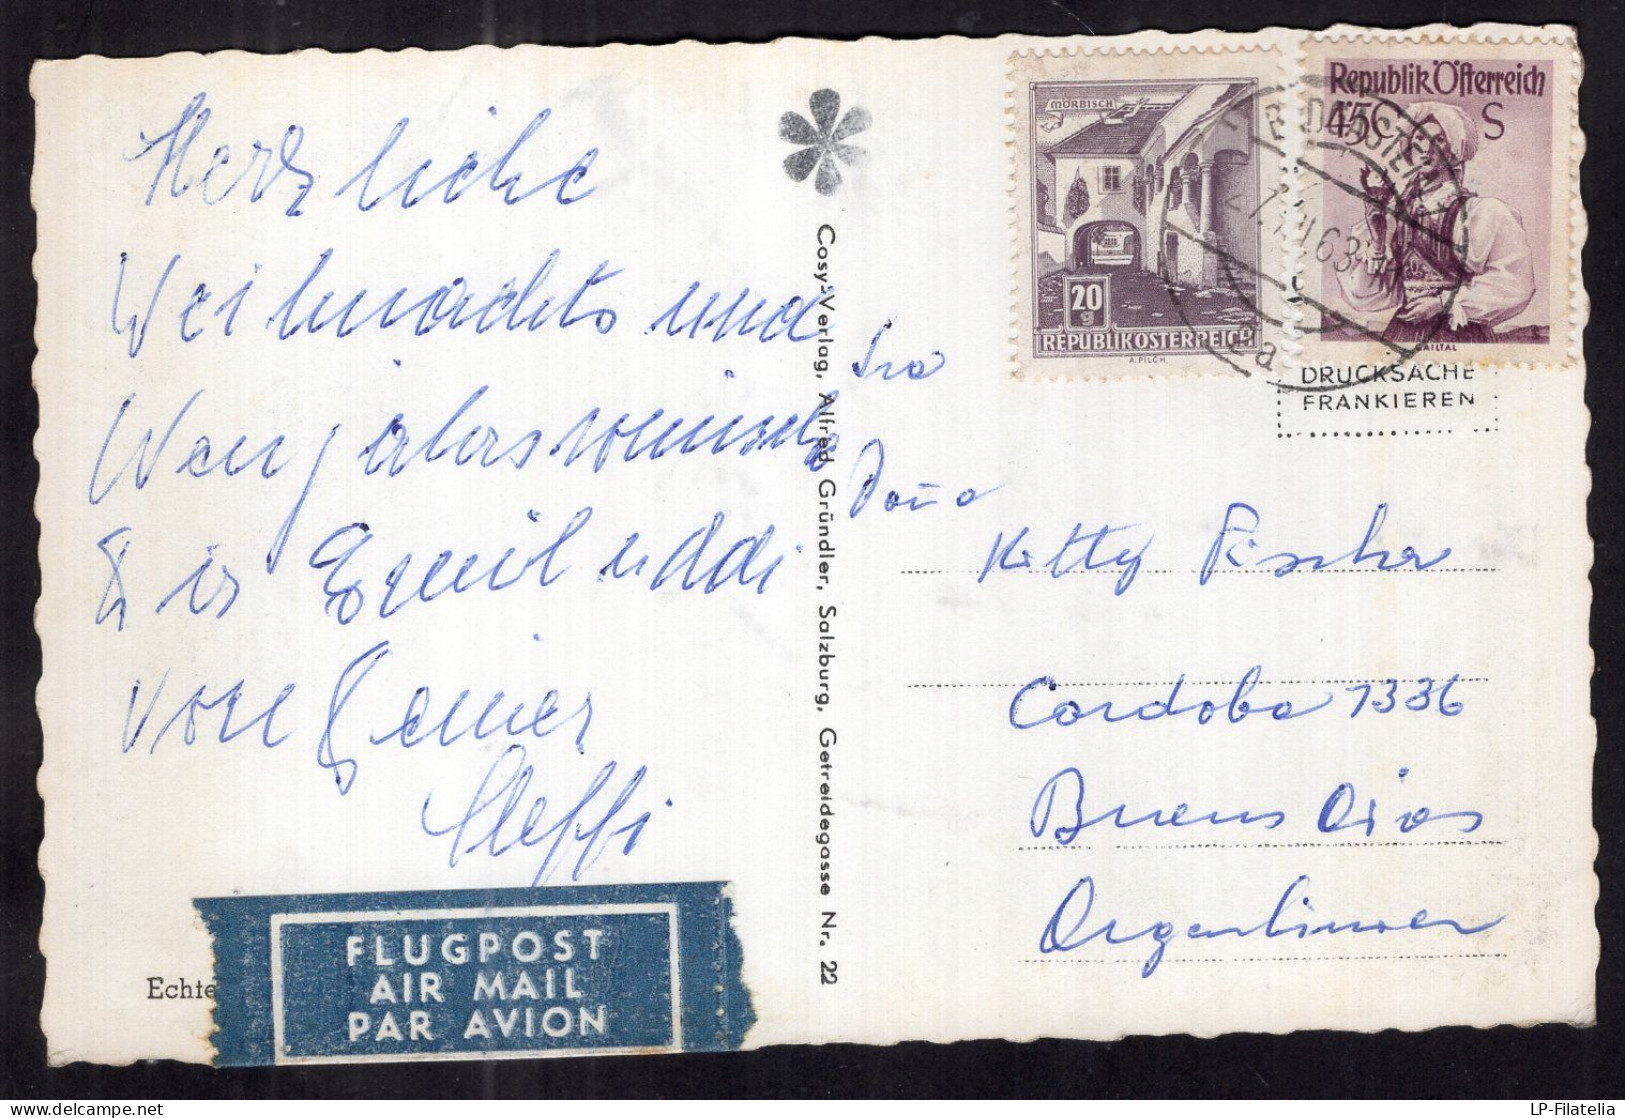 Herzliche
Weihnachts und
Neujahrswünsche
Dir Emil uddi
von Deiner
Steffi
Cosy-Verlag, Alfred Gründler, Salzburg, Getreidegasse Nr. 22
Sra
Doña
Kitty Fischer
Cordoba 1336
Buenos Aires
Argentinien
MÖRBISCH
20
g
REPUBLIK OSTERREICH
A. PILCH.
Republik Österreich
45
S
GAILTAL
63
a
DRUCKSACHE
FRANKIEREN
Echte
FLUGPOST
AIR MAIL
PAR AVION
LP-Filatelia